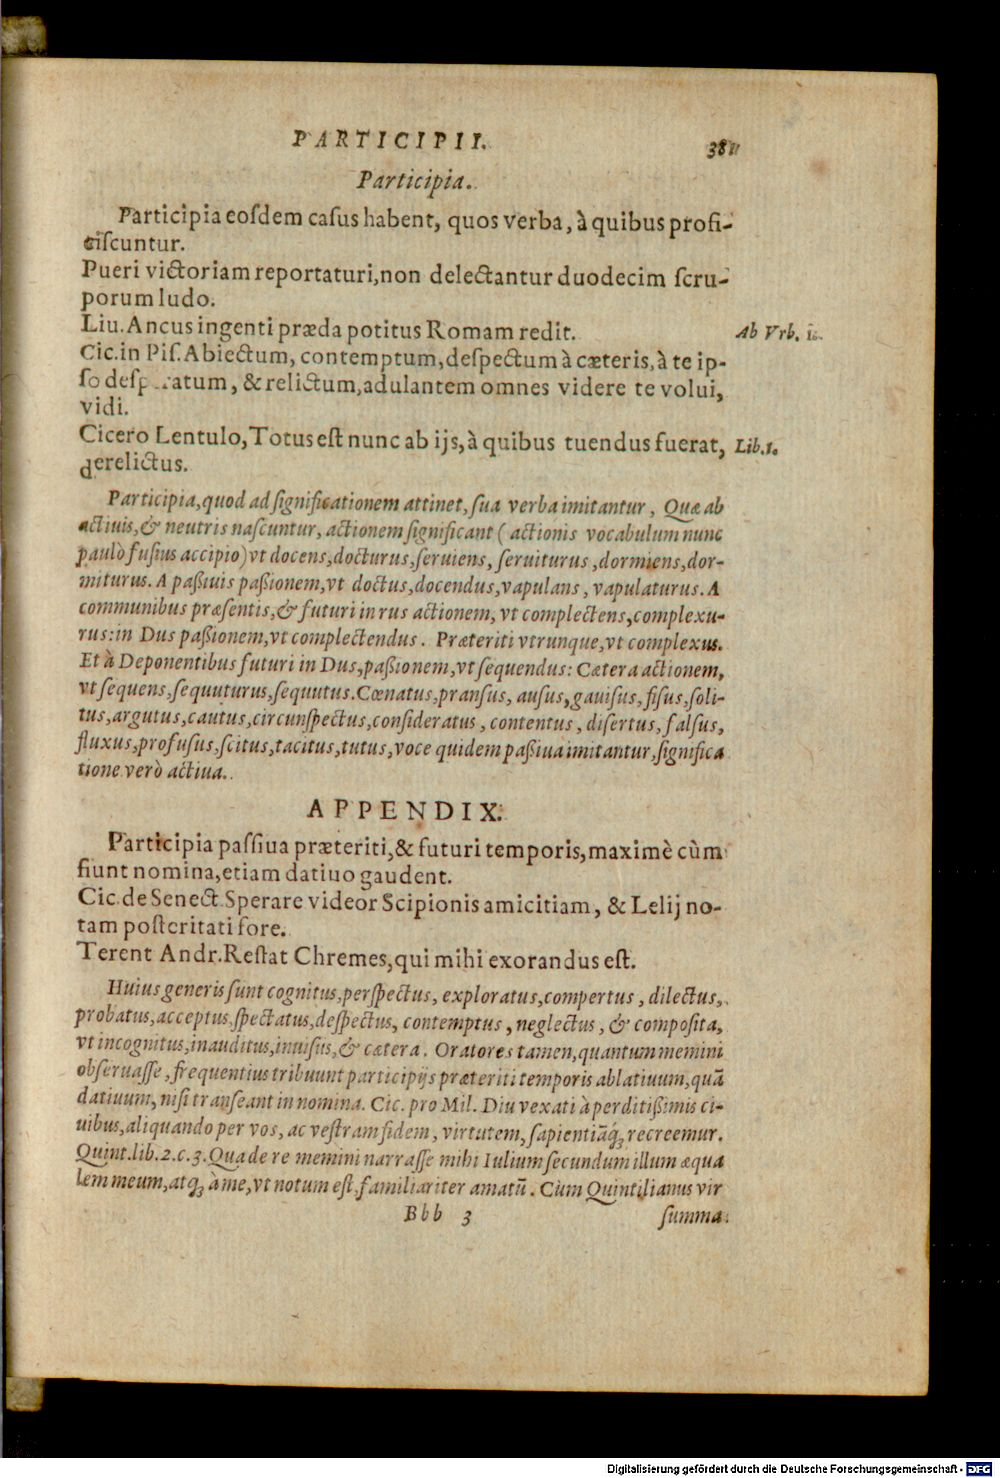 PARTICIPII.
Participia.
Participia eosdem casus habent, quos verba, à quibus profi-
ciscuntur.
Pueri victoriam reportaturi, non delectantur duodecim scru-
porum ludo.
Liu. Ancus ingenti præda potitus Romam redit. Ab Vrb.
Cic. in Pis. Abiectum, contemptum, despectum à cæteris, à te ip-
so desp..ratum, & relictum, adulantem omnes videre te volui,
vidi.
Cicero Lentulo, Totus est nunc ab ijs, à quibus tuendus fuerat, Lib. 1.
derelictus.
Participia, quod ad significationem attinet, sua verba imitantur, Quæ ab
actiuis, & neutris nascuntur, actionem significant (actionis vocabulum nunc
paulò fusius accipio) vt docens, docturus, seruiens, seruiturus, dormiens, dor-
miturus. A passiuis passionem, vt doctus, docendus, vapulans, vapulaturus. A
communibus præsentis, & futuri in rus actionem, vt complectens, complexu-
rus: in Dus passionem, vt complectendus. Præteriti vtrunque, vt complexus.
Et à Deponentibus futuri in Dus, passionem, vt sequendus: Cætera actionem,
vt sequens, sequuturus, sequutus. Cœnatus, pransus, ausus, gauisus, fisus, soli-
tus, argutus, cautus, circunspectus, consideratus, contentus, disertus, falsus,
fluxus, profusus, scitus, tacitus, tutus, voce quidem passiua imitantur, significa
tione verò actiua.
APPENDIX.
Participia passiua præteriti, & futuri temporis, maximè cùm
fiunt nomina, etiam datiuo gaudent.
Cic. de Senect. Sperare videor Scipionis amicitiam, & Lelij no-
tam posteritati fore.
Terent Andr. Restat Chremes, qui mihi exorandus est.
Huius generis sunt cognitus, perspectus, exploratus, compertus, dilectus,
probatus, acceptus, spectatus, despectus, contemptus, neglectus, & composita,
vt incognitus, inauditus, inuisus, & cætera. Oratores tamen, quantum memini
obseruasse, frequentius tribuunt participijs præteriti temporis ablatiuum, quã
datiuum, nisi transeant in nomina. Cic. pro Mil. Diu vexati à perditissimis ci-
uibus, aliquando per vos, ac vestram fidem, virtutem, sapientiãq; recreemur.
Quint. lib. 2. c. 3. Qua de re memini narrasse mihi Iulium secundum illum æqua
lem meum, atq; à me, vt notum est, familiariter amatũ. Cùm Quintilianus vir
Bbb 3 summa
Digitalisierung gefördert durch die Deutsche Forschungsgemeinschaft - DFG